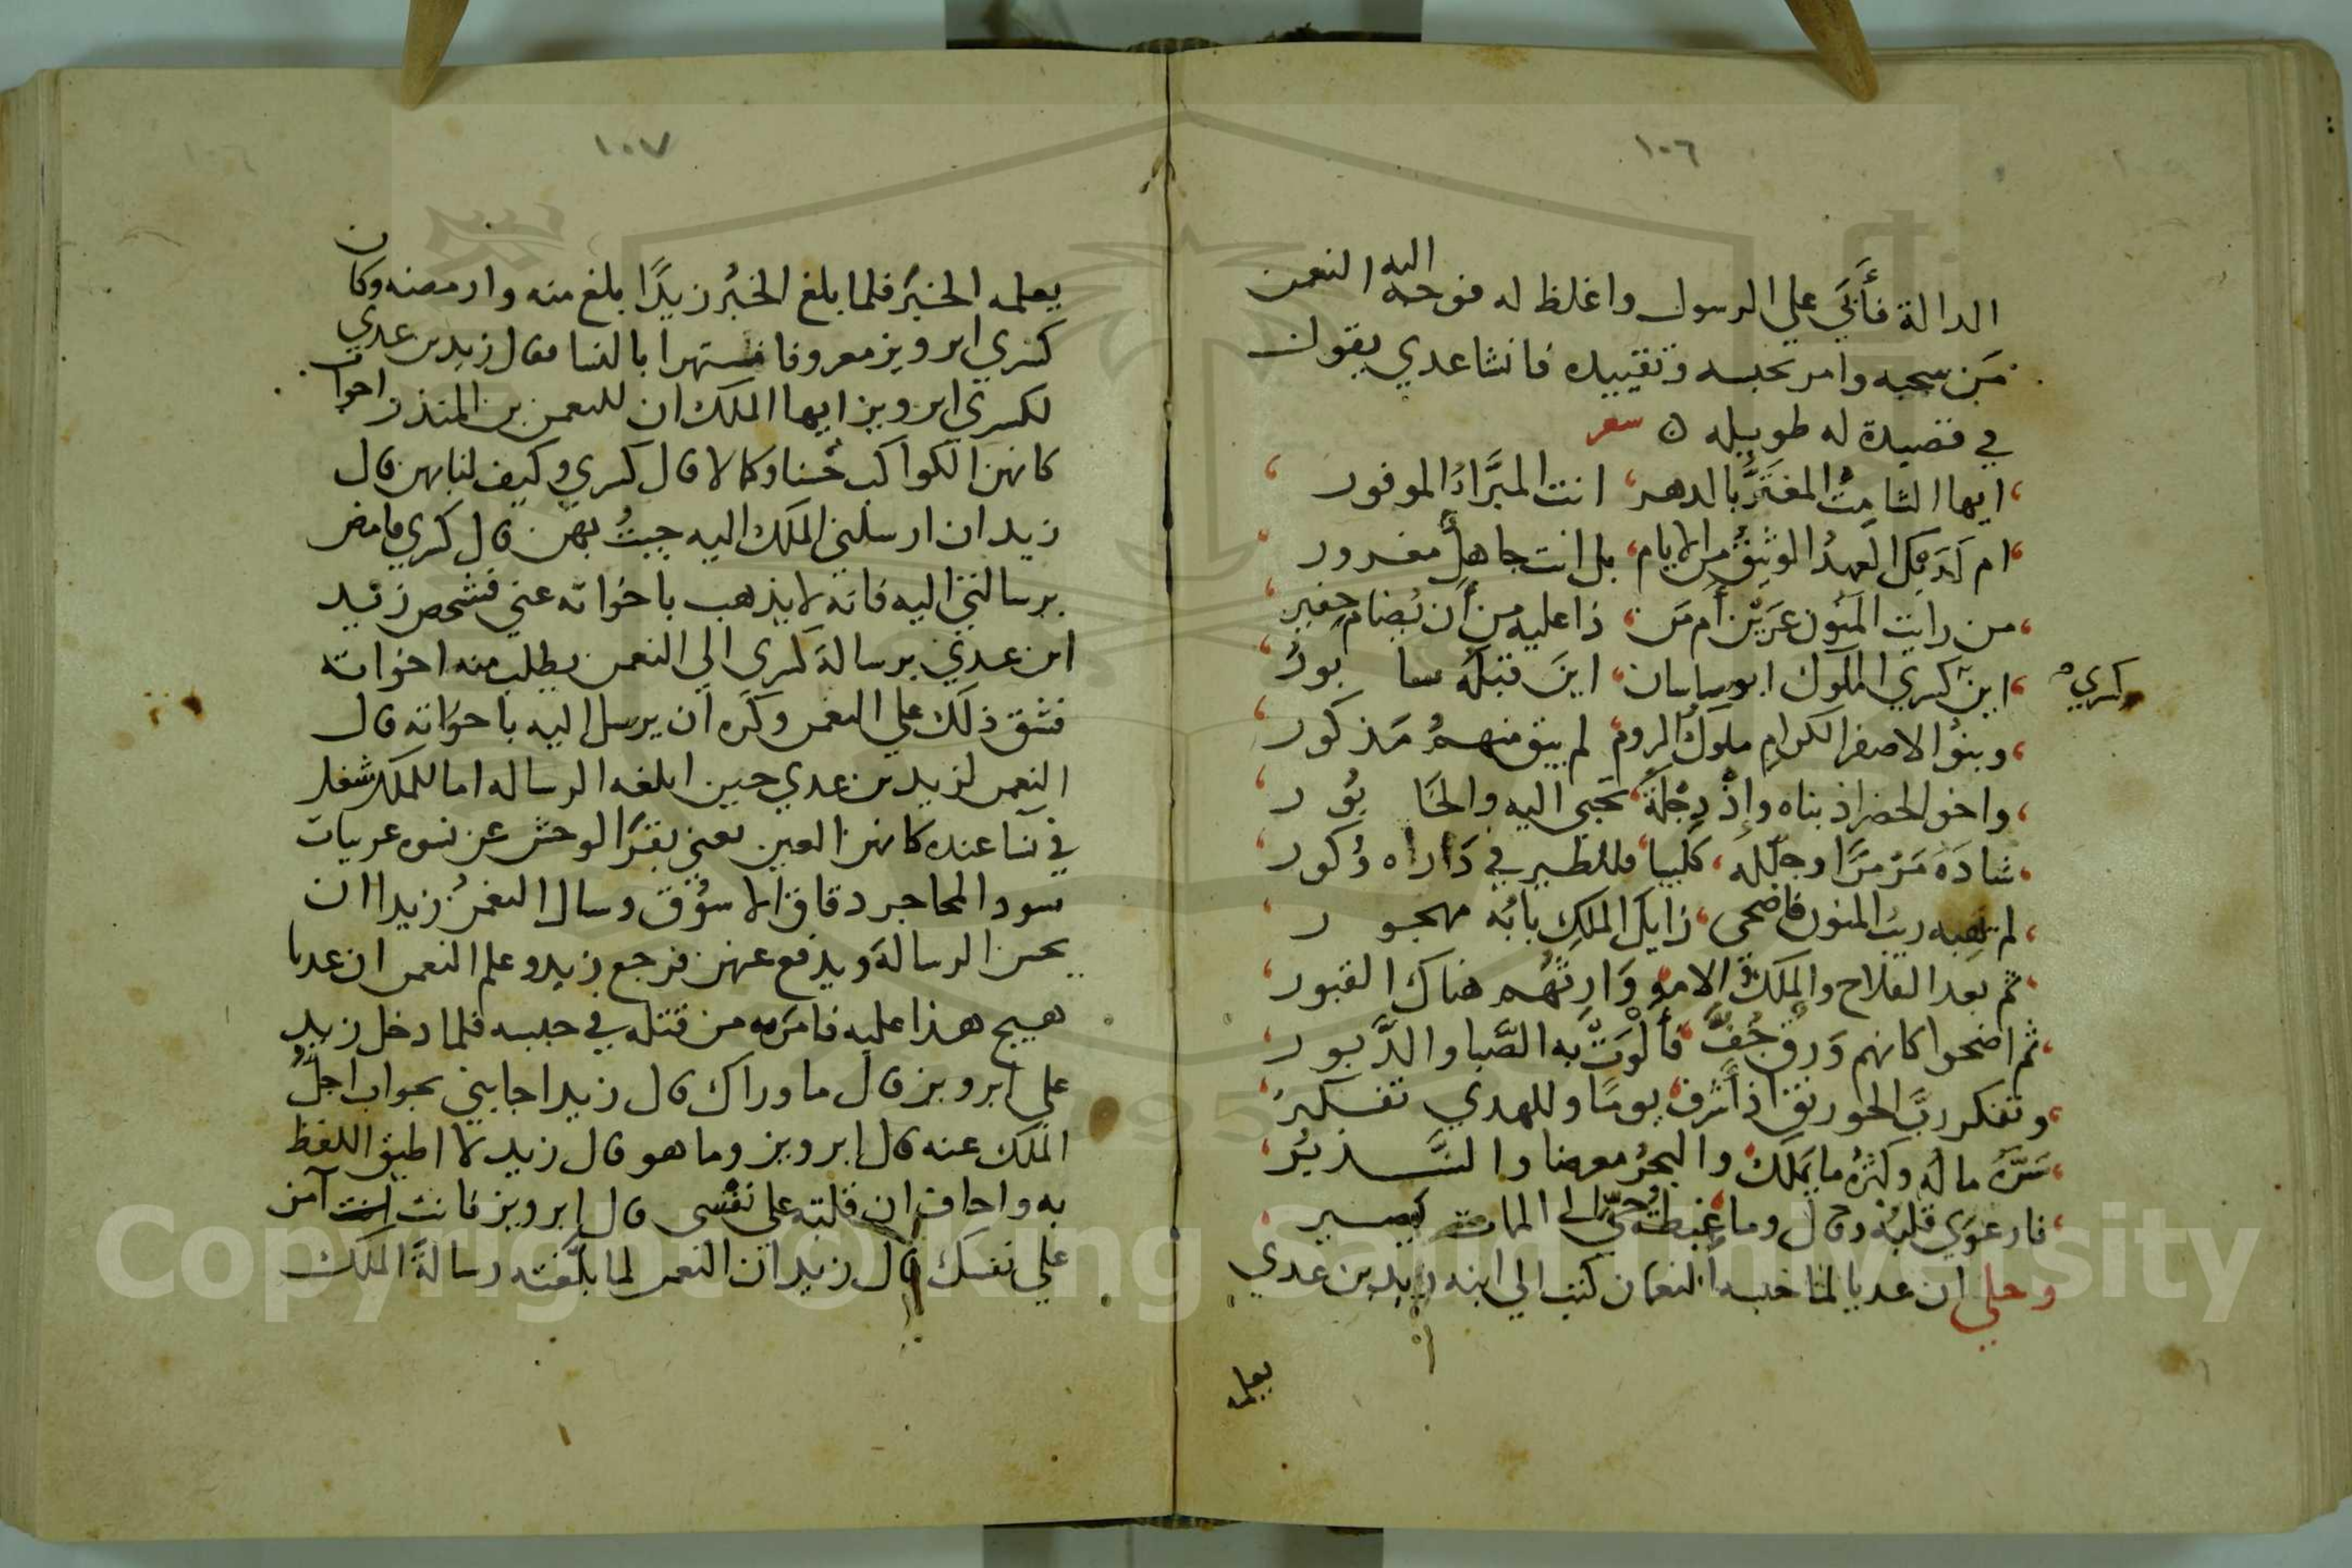 ١٠٦
الدالة فأبَي علي الرسول واغلظ له فوجه اليه النعمن
من سجبه وامر بحبسه وتقييده فانشا عدي يقول
في قصيدة له طويله ن سعر
ايها الشامِتُ المغترُّ بالدهر انت المبَّراءُ الموفور
ام لديكَ العهدُ الوثيقُ من الايام بل انت جاهلٌ مغرور
من رايت المنون عَرَّيْن أم مَن ذا عليه من أن يُضام خفير
اين كسري الملوك ابو ساسان اينَ قبلَه سا بورُ
كسري
وبنوُ الاصفر الكرامِ ملوكُ الروم لم يبق منهمُ مَذكور
واخو الحضر اذ بناه وإذْ دِجْلةُ تجبي اليه والخا بُو ر
شادَهَ مَرْمَرًا وجلّله كلسا فللطير في ذَراه وُكور
لم يَهِبه ريبُ المنون فاضحى زايلَ الملكِ بابُه مهجو ر
ثم بعد الفلاح والملك والامةِ وَارتهُم هناك القبور
ثم اضحوا كانهم وَرق جُفَّ فألْوَتْ به الصَّبا والدَّبور
وتفكر ربَّ الخورنق اذ أشرف يومًا وللهدي تفكيرُ
سَرّهُ مالُه وكثرُه ما يَملك والبحرُ معرضا والسَّديرُ
فارعوَي قلبُه وقال وما غبطةُ حيّ الى الممات يصير
وحكي ان عديا لما حبسه النعمان كتب الي ابنه زيد بن عدي
يعلمه
١٠٧
يعلمه الخبَر فلما بلغ الخبُر زيدًا بلغ منه وارمضه وكان
كسري ابرويز معروفا مستهترا بالنسا فقال زيد بن عدي
لكسري ابرويز ايها الملك ان للنعمن بن المنذر اخوات
كانهن الكواكب حُسنا وكمالا قال كسري وكيف لنا بهن قال
زيد ان ارسلني الملك اليه جيتُ بهن قال كسري فامض
برسالتي اليه فانه لا يذهب باخواته عني فشخص زيد
ابن عدي برسالة كسرى الي النعمن يطلب منه اخواته
فشق ذلك علي النعمن وكره ان يرسل اليه باخواته قال
النعمن لزيد بن عدي حين ابلغه الرساله اما للملك شغل
في نسا عنده كانهن العين يعني بقَر الوحش عن نسوه عربيات
سود المحاجر دقاق الاسوُق وسال النعمنُ زيدا ان
يحسن الرسالة ويدفع عنهن فرجع زيد وعلم النعمن ان عديا
هيج هذا عليه فامَر به من قتله في حبسه فلما دخل زيد
علي ابرويز قال ما وراك قال زيد اجابني بجواب اجلُّ
الملك عنه قال ابرويز وما هو قال زيد لا اطيق اللفظ
به واخاف ان قلته علي نفسى قال ابرويز فانت آمن
علي نفسك قال زيد ان النعمن لما بلَّغته رسالةَ الملك